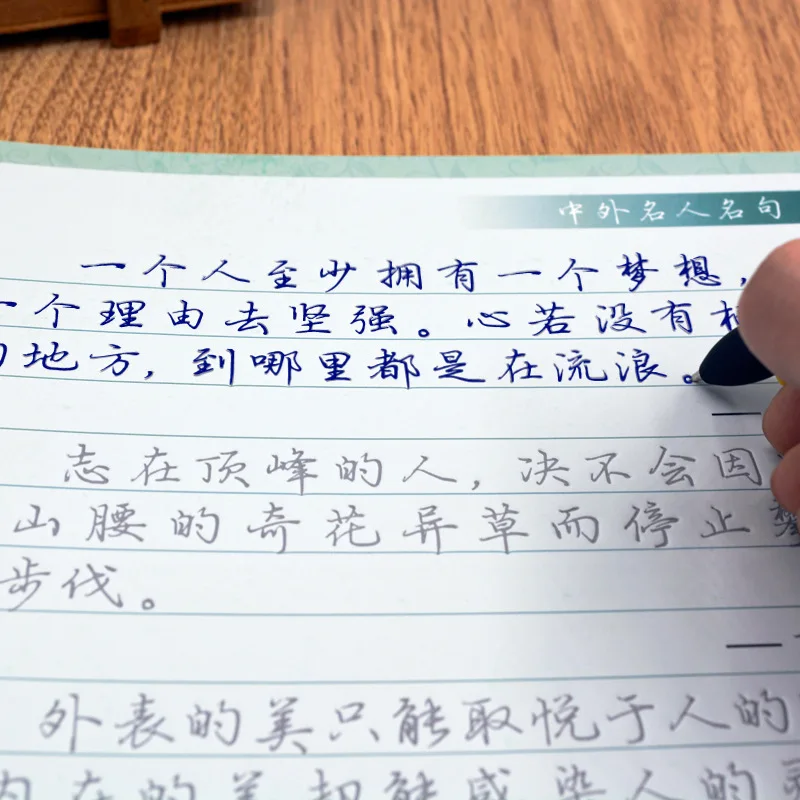 中外名人名句
一个人至少拥有一个梦想，
一个理由去坚强。心若没有
地方，到哪里都是在流浪。
—
志在顶峰的人，决不会因
山腰的奇花异草而停止攀
步伐。
—
外表的美只能取悦于人的
内在的美却能感染人的灵